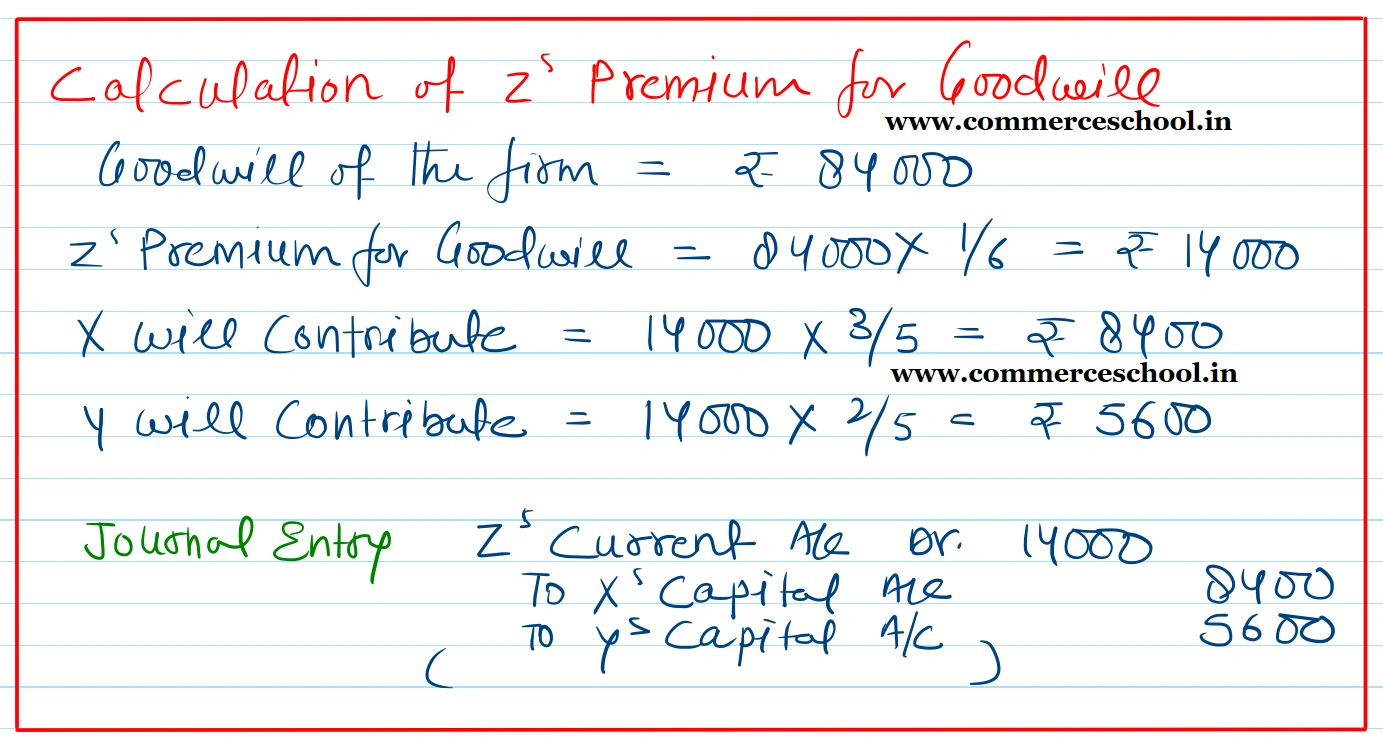 Calculation of Z's Premium for Goodwill
www.commerceschool.in
Goodwill of the firm = ₹ 84000
Z's Premium for Goodwill = 84000 X 1/6 = ₹ 14000
X will Contribute = 14000 X 3/5 = ₹ 8400
www.commerceschool.in
Y will Contribute = 14000 X 2/5 = ₹ 5600
Journal Entry Z's Current A/c Dr. 14000
To X's Capital A/c 8400
To Y's Capital A/C 5600
( )